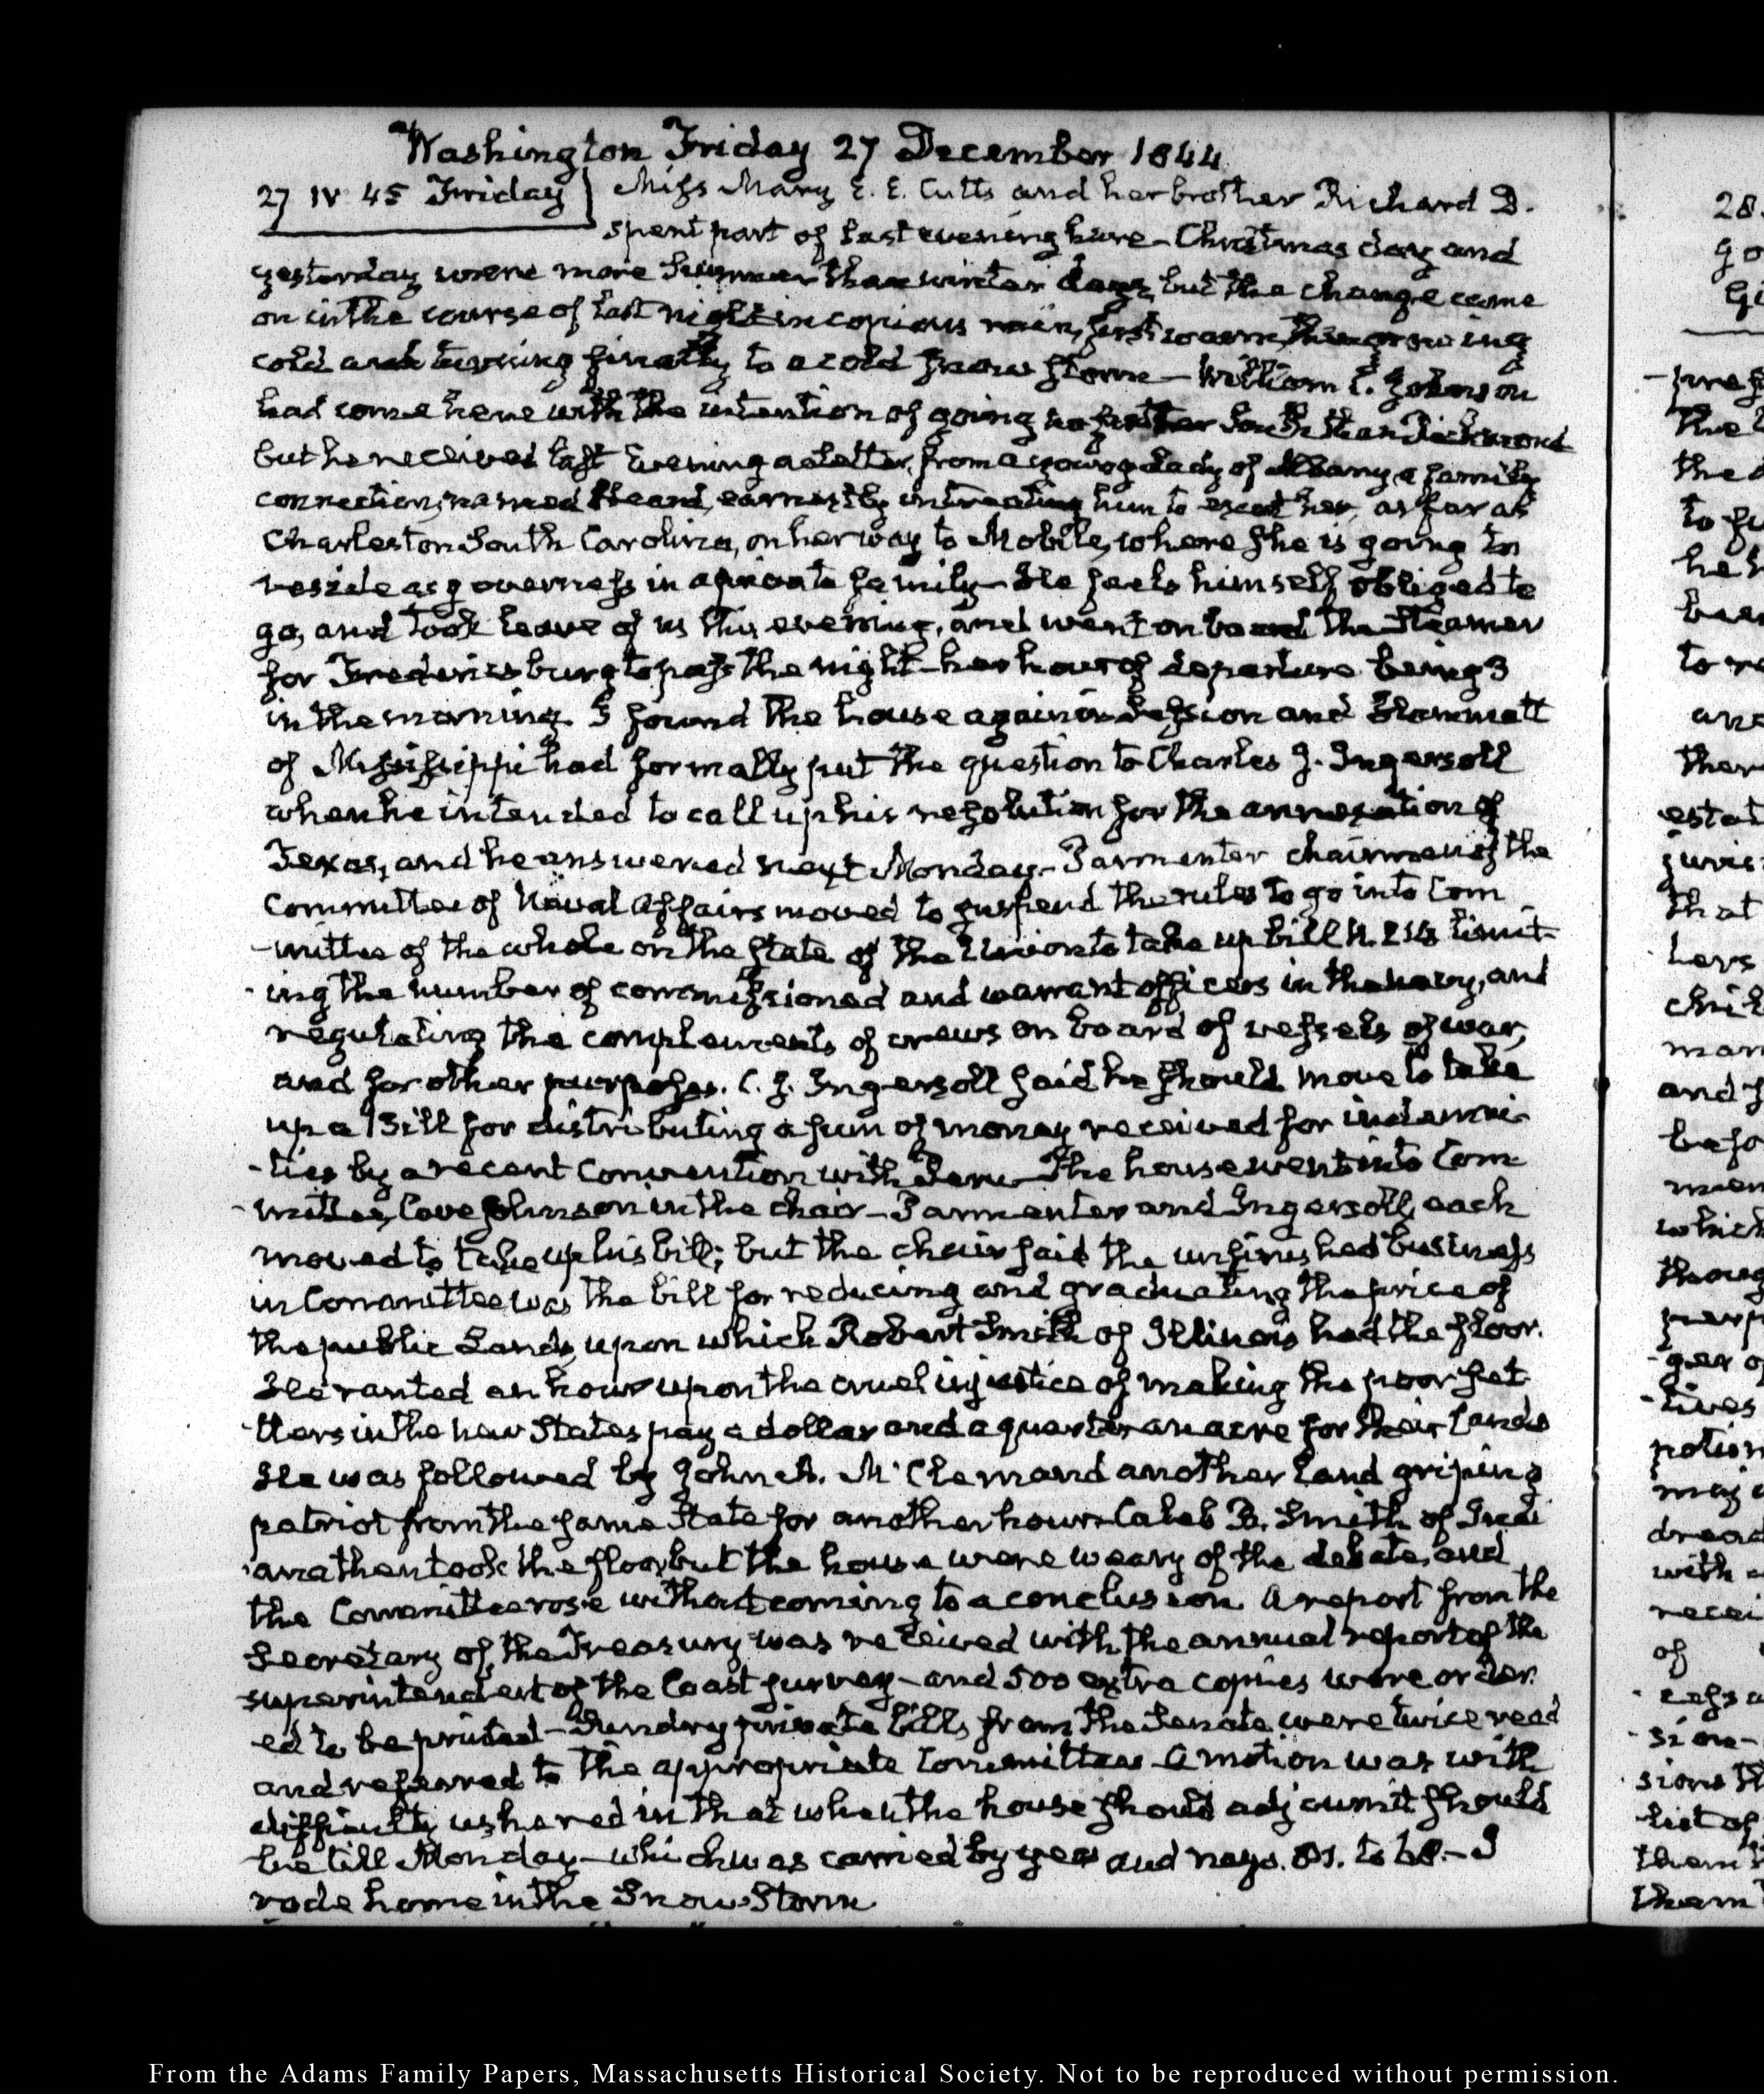 Washington Friday 27 December 1844
27 IV 45 Friday } Miss Mary E. E. Cutts and her brother Richard D.
spent part of last evening here - Christmas day and
yesterday were more Summer than winter days, but the change came
on in the course of last night in copious rain, first warm, then growing
cold and turning finally to a cold snow storm - William C. Johnson
had come here with the intention of going no further South than Richmond
but he received last Evening a letter, from a young Lady of Albany, a family
connection, named earnestly intreating him to escort her, as far as
Charleston South Carolina, on her way to Mobile, where she is going to
reside as governess in a private family - He feels himself obliged to
go, and took leave of us this evening, and went on board the Steamer
for Fredericksburg to pass the night - her hour of departure being 3
in the morning. I found the house again in Session and Hammett
of Missisippi had formally put the question to Charles J. Ingersoll
when he intended to call up his resolution for the annexation of
Texas, and he answered next Monday - Parmenter chairman of the
Committee of Naval Affairs moved to suspend the rules to go into Com
-mittee of the whole on the State of the Union to take up bill N. limit-
-ing the number of commissioned and warrant officers in the navy, and
regulating the complements of crews on board of vessels of war,
and for other purposes. C. J. Ingersoll said he should move to take
up a Bill for distributing a sum of money received for indemni-
-ties by a recent Convention with Peru - The house went into Com-
-mittee, Cave Johnson in the chair - Parmenter and Ingersoll, each
moved to take up his bill; but the chair said the unfinished business
in Committee was the bill for reducing and graduating the price of
the public Lands, upon which Robert Smith of Illinois had the floor.
He ranted an hour upon the cruel injustice of making the poor set-
-tlers in the new States pay a dollar and a quarter an acre for their Lands
He was followed by John A. McClernand another Land griping
patriot from the same State for another hour. Caleb B. Smith of Indi
-ana then took the floor, but the house were weary of the debate, and
the Committee rose without coming to a conclusion. A report from the
Secretary of the Treasury was received with the annual report of the
superintendent of the Coast Survey - and 500 extra copies were order-
ed to be printed - Sundry private bills from the Senate were twice read
and referred to the appropriate Committees - A motion was with
difficulty ushered in that when the house should adjourn it should
be till Monday - which was carried by yeas and nays. 81. to 68. - I
rode home in the Snow Storm
From the Adams Family Papers, Massachusetts Historical Society. Not to be reproduced without permission.